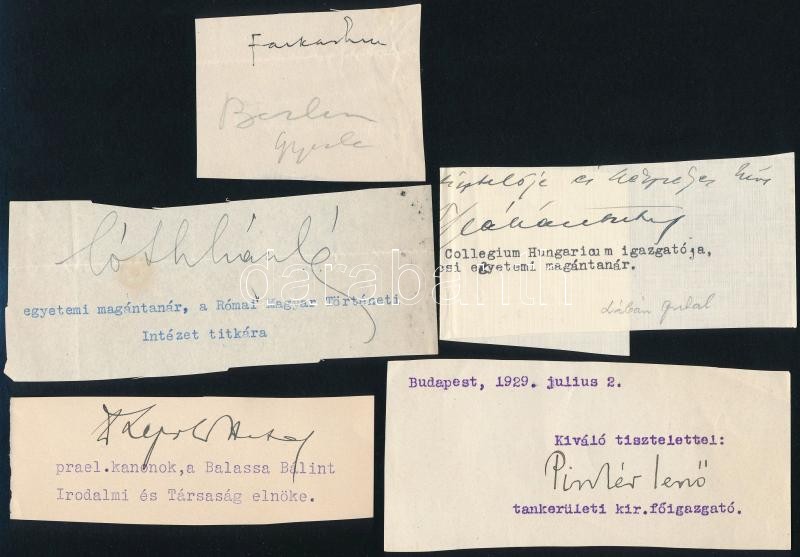 Farkas
Gyula
Tóth László
egyetemi magántanár, a Római Magyar Történeti
Intézet titkára
tisztelője és híve
Collegium Hungaricum igazgatója,
si egyetemi magántanár.
Lábán Antal
Lepold Antal
prael.kanonok,a Balassa Bálint
Irodalmi és Társaság elnöke.
Budapest, 1929. julius 2.
Kiváló tisztelettel:
Pintér Jenő
tankerületi kir.főigazgató.
darabanth